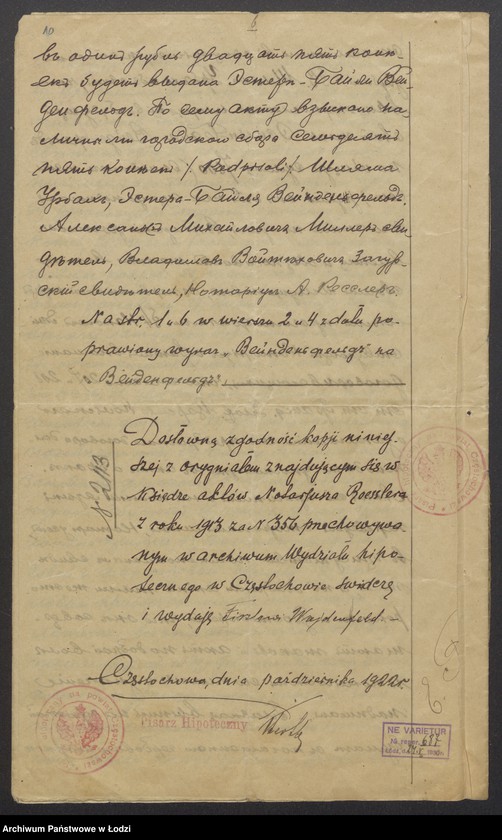 10
6
въ одинъ рубль двадцать пять копѣ-
екъ будетъ выдана Эстери-Байли Вей-
денфельдъ. По сему акту взыскано на-
личными городского сбора семьдесятъ
пять копѣекъ /Podpisali/ Шляма
Урбахъ, Эстера-Байля Вейнденфельдъ,
Александръ Михайловичъ Миллеръ сви-
дѣтель, Владиславъ Войтѣховичъ Загур-
скій свидѣтель, Нотаріусъ А. Росслеръ.
Na str. 1 i 6 w wierszu 2 и 4 z dołu po-
prawiony wyraz „Вейнденфельдъ" na
„Вейденфельдъ".
Dosłowną zgodność kopji niniej-
szej z oryginałem znajdującym się w
Księdze aktów Notarjusza Roesslera
z roku 1913 za N 356 przechowywa-
nym w archiwum Wydziału hipo-
tecznego w Częstochowie świadczę
i wydaję Fiszlowi Wajdenfeld. –
Częstochowa, dnia października 1922 r.
Pisarz Hipoteczny
NE VARIETUR
677
Archiwum Państwowe w Łodzi
szukajwarchiwach.gov.pl